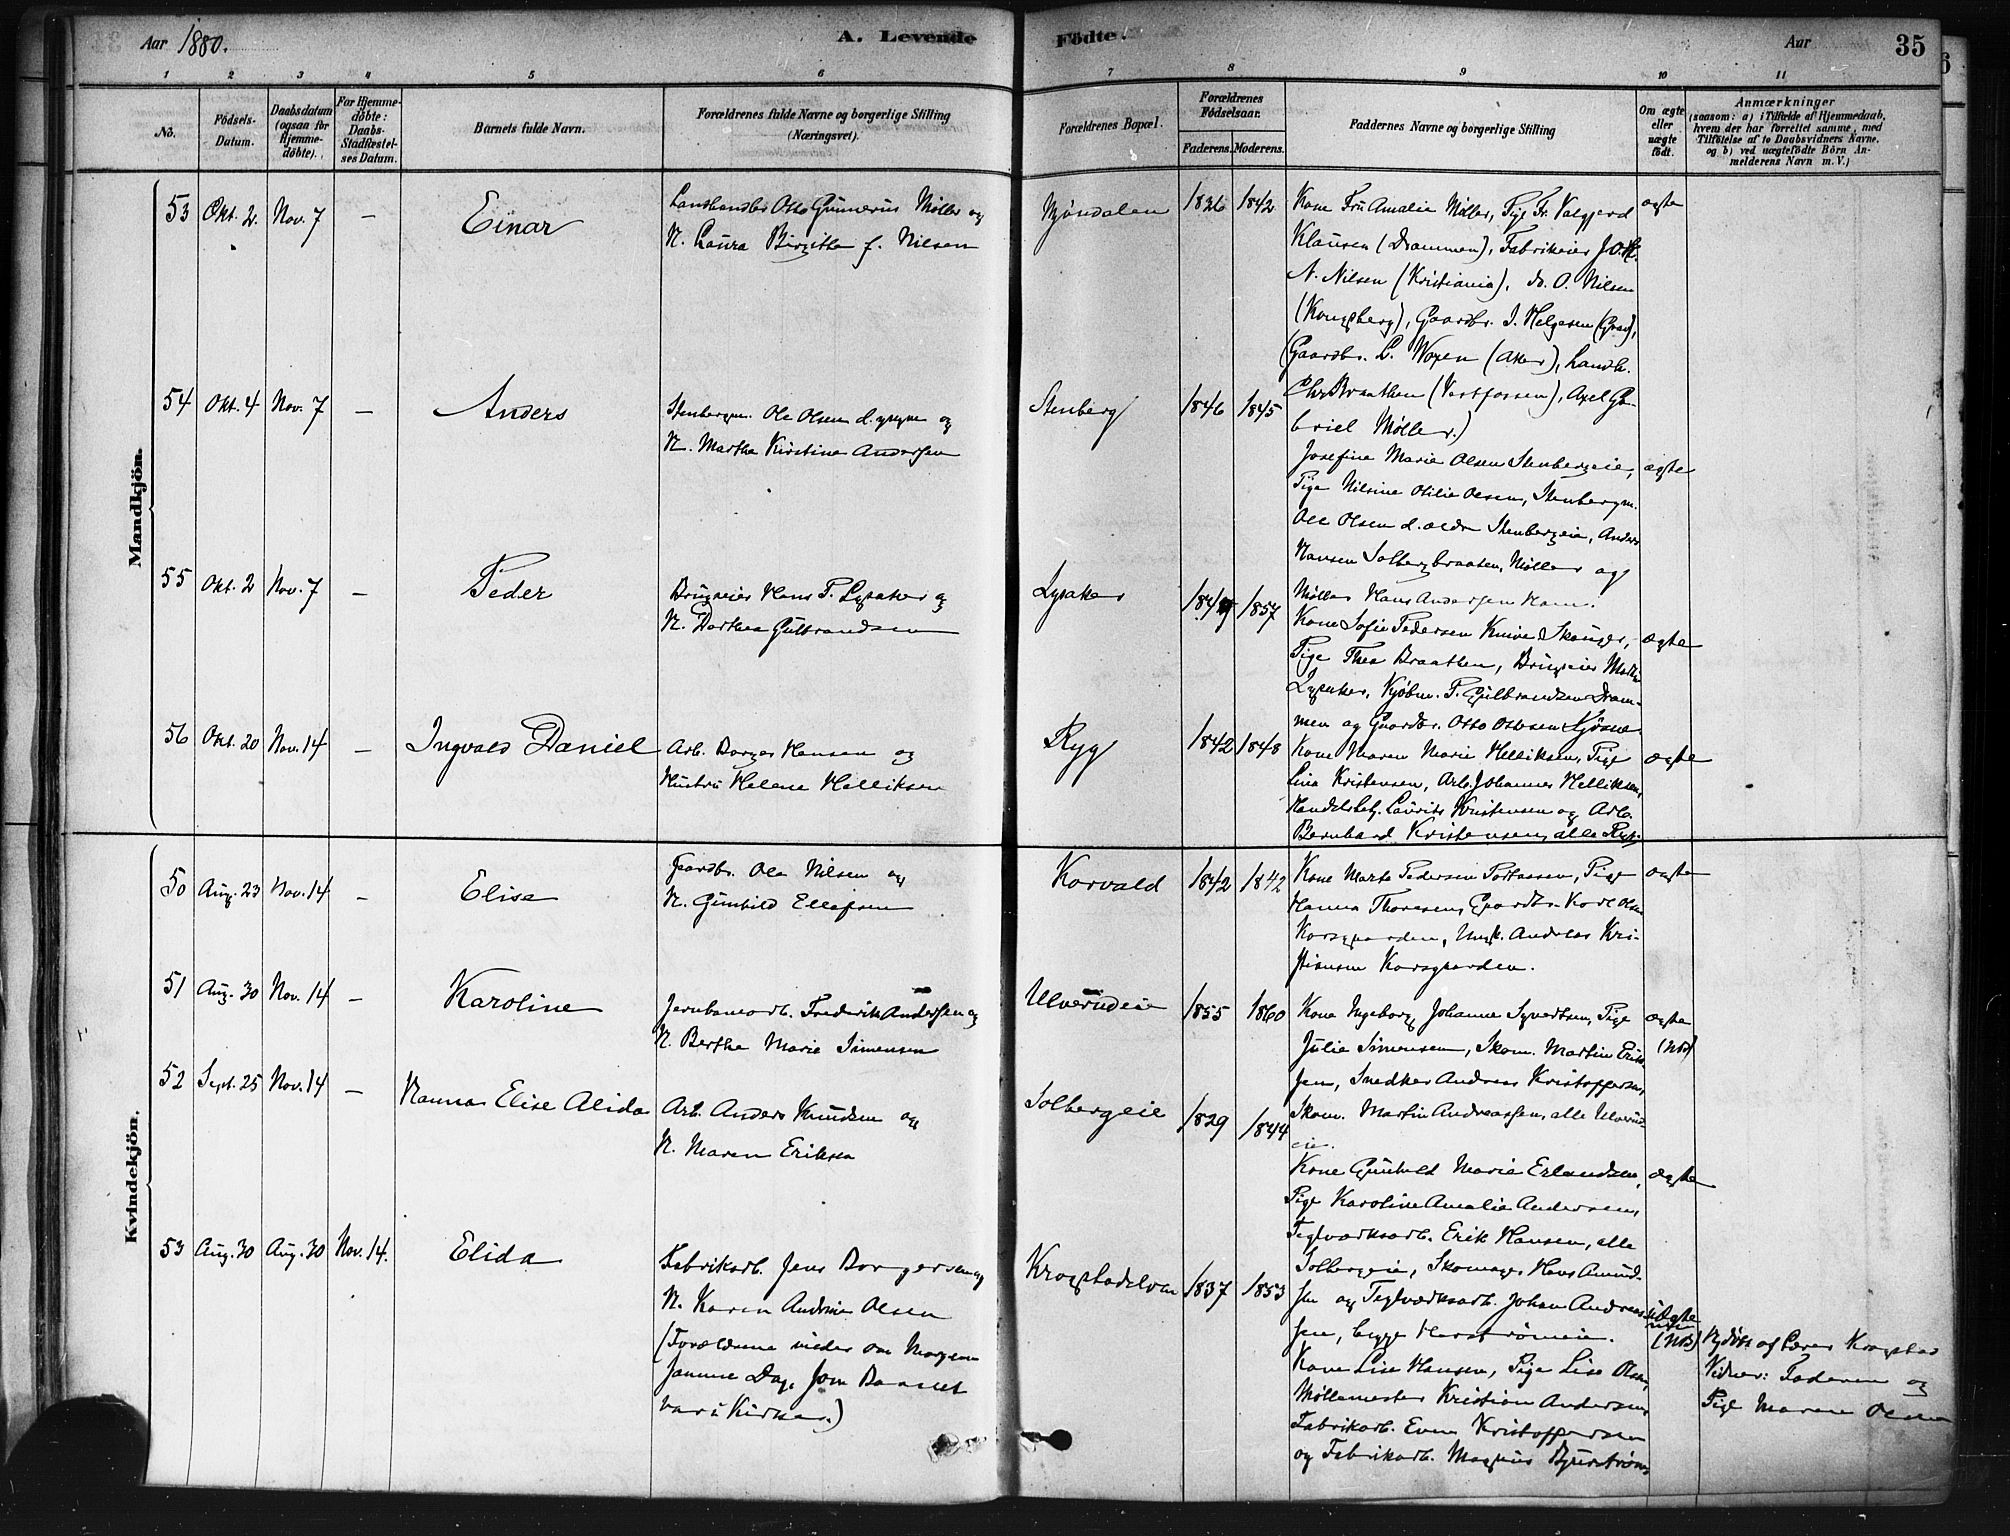 Aar 1880.
A. Levende Födte.
Aar
35
1 2 3 4 5 6 7 8 9 10 11
No.
Födsels-Datum.
Daabsdatum (ogsaa for Hjemme-döbte).
For Hjemme-döbte: Daabs-Stadfæstel-ses Datum.
Barnets fulde Navn.
Forældrenes fulde Navne og borgerlige Stilling (Næringsvei).
Forældrenes Bopæl.
Forældrenes Födselsaar.
Faderens. Moderens.
Faddernes Navne og borgerlige Stilling
Om ægte eller uægte født.
Anmærkninger
(saasom: a) i Tilfælde af Hjemmedaab,
hvem der har forrettet samme, med
Tilföielse af to Daabsvidners Navne,
og b) ved uægtefödte Börn An-
melderens Navn m. V.)
Mandkjön.
53 Okt. 2. Nov. 7 – Einar
Landhandler Otto Gunnerius Møller og
H. Laura Birgitte f. Nilsen
Mjøndalen 1836 1842
Kone Fru Amalie Møller, Pige Fr. Valgjerd
Klausen (Drammen), Fabrikeier J. O. H.
N. Nilsen (Kristiania), do. O. Nilsen
(Kongsberg), Gaardbr. I. Helgesen (Gran),
(Gaardbr. L. Woxen (Aker), Landh.
Chr. Braathen (Vestfossen), Axel Ga-
briel Møller.)
ægte
54 Okt. 4 Nov. 7 – Anders
Stenbergm. Ole Olsen d. yngre og
H. Marthe Kirstine Andersen
Stenberg 1846 1845
Josefine Marie Olsen Stenbergeie,
Pige Nilsine Otilie Olsen, Stenbergm.
Ole Olsen d. ældre Stenbergeie, Anders
Hansen Solbergbraaten, Møller og
Møller Hans Andersen Ham.
ægte
55 Okt. 2 Nov. 7 – Peder
Brugseier Hans P. Lysaker og
H. Dorthea Gulbrandsen
Lysaker 1849 1857
Kone Sofie Pedersen Knive Skouger,
Pige Thea Braathen, Brugseier
Lysaker, Kjøbm. P. Gulbrandsen Dram-
men og Gaardbr. Otto Ottesen
ægte
56 Okt. 20 Nov. 14 – Ingvald Daniel
Arb. Borger Hansen og
Hustru Helene Helliksen
Ryg 1842 1848
Kone Maren Marie Helliksen, Pige
Lina Kristensen, Arb. Johannes Helliksen,
Handelsbetj. Laurits Kristensen og Arb.
Bernhard Kristensen, alle Ryg.
ægte
Kvindekjön.
50 Aug. 23 Nov. 14 – Elise
Gaardbr. Ole Nilsen og
H. Gunhild Ellefsen
Korvald 1842 1842
Kone Marte Pedersen, Pige
Hanna Thoresen, Gaardbr. Karl Olsen
Korsgaarden, Ungk. Andreas Kri-
stiansen Korsgaarden.
ægte
51 Aug. 30 Nov. 14 – Karoline
Jernbanearb. Frederik Anderssen og
H. Berthe Marie Simensen
Ulverudeie 1855 1860
Kone Ingeborg Johanne Syvertsen, Pige
Julie Simensen, Skom. Martin Erik-
sen, Snedker Andreas Kristoffersen,
Skom. Martin Andreassen, alle Ulverud-
eie.
ægte
(NB)
52 Sept. 25 Nov. 14 – Hanna Elise Alida
Arb. Anders Knudsen og
H. Maren Eriksen
Solbergeie 1829 1844
Kone Gunhild Marie Erlandsen,
Pige Karoline Amalie Andersen,
Teglværksarb. Erik Hansen, alle
Solbergeie, Skomager Hans Amund-
sen og Teglværksarb. Johan Andreas-
sen, begge Horstrømeie.
ægte
53 Aug. 30 Aug. 30 Nov. 14. Elida
Fabrikarb. Jens Borgersen og
H. Karen Andrine Olsen
(Forældrene viedes om Morgenen
samme Dag, som Barnet
var i Kirken.)
Krogstadelven 1837 1853
Kone Lise Hansen, Pige Lise Olsen,
Møllemester Kristian Andersen,
Fabrikarb. Even Kristoffersen
og Fabrikarb. Magnus Bjurstrøm
uægte
(NB)
Hjdøbt af Lærer Krogstad
Vidner: Faderen og
Pige Maren Olsen